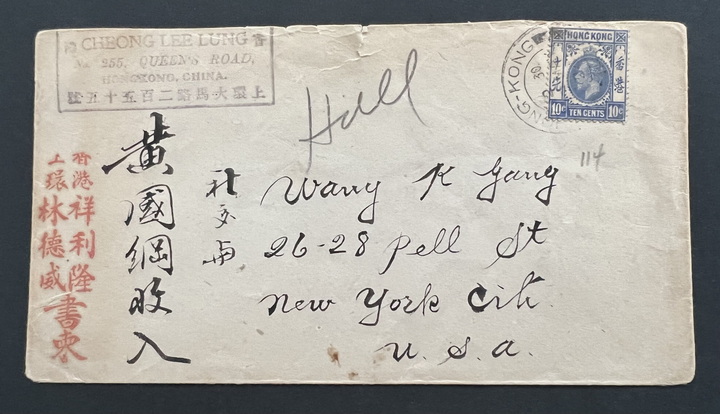 CHEONG LEE LUNG
No. 255, QUEEN'S ROAD,
HONGKONG, CHINA.
上環大馬路二百五十五號
HONG KONG
香港
10c TEN CENTS 10c
114
香港祥利隆
上環林德威書柬
黃國綱收入
Wang K Gang
26-28 Pell St
New York Cit.
U. S. A.